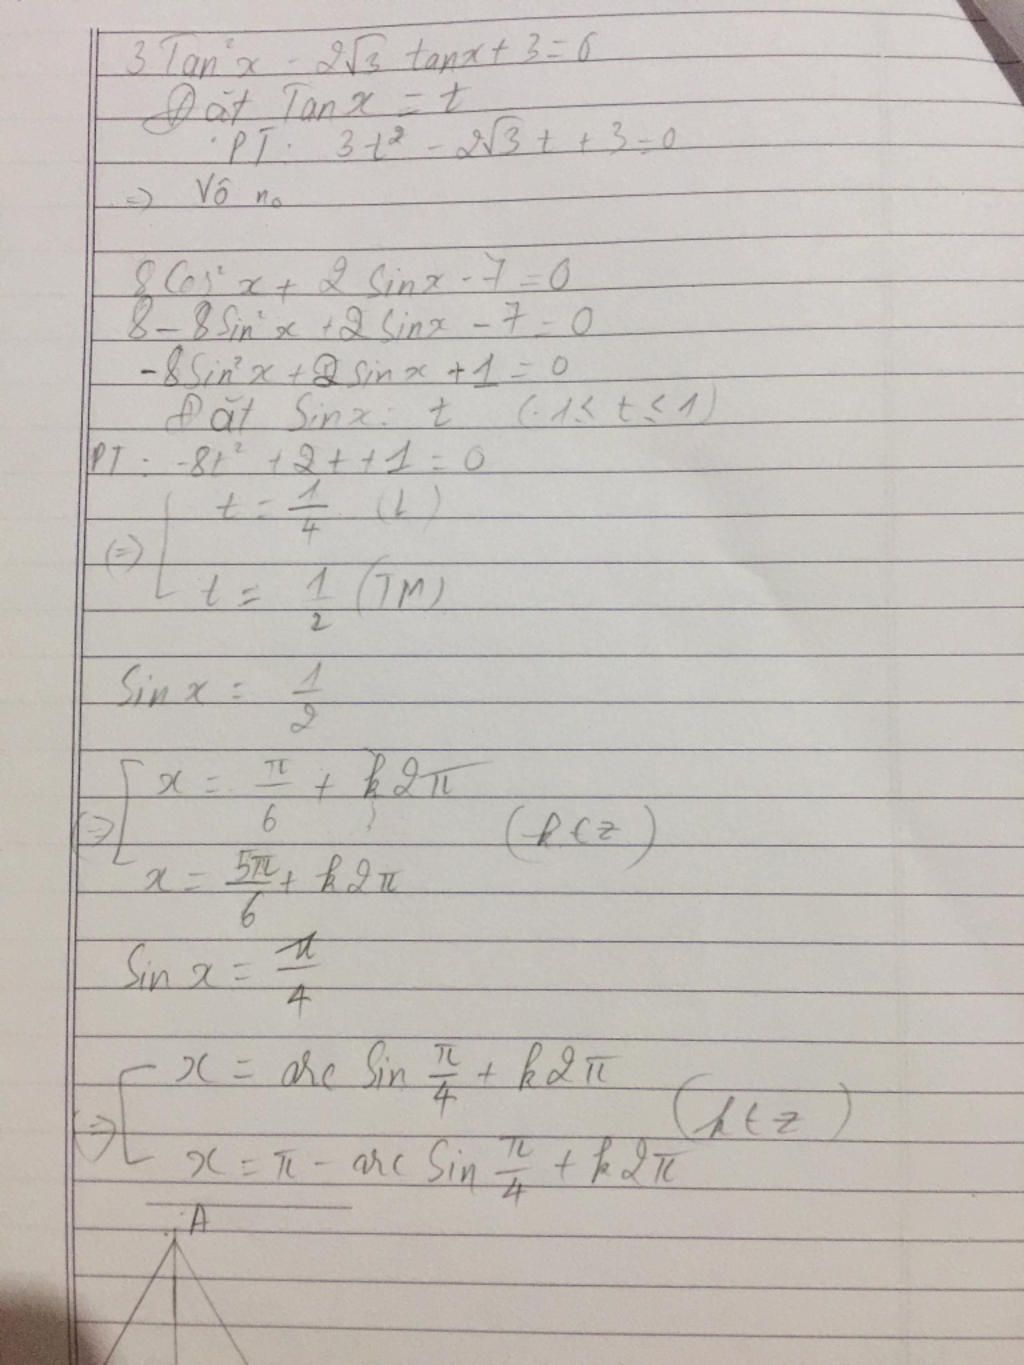 3 Tan²x - 2√3 tanx + 3 = 0
Đặt Tanx = t
PT: 3t² - 2√3 t + 3 = 0
=> Vô n₀
8 Cos²x + 2 sinx - 7 = 0
8 - 8Sin²x + 2 Sinx - 7 = 0
-8 Sin²x + 2 sinx + 1 = 0
Đặt Sinx = t (-1 ≤ t ≤ 1)
PT: -8t² + 2t + 1 = 0
(=) [ t = 1/4 (L)
t = 1/2 (TM)
Sin x = 1/2
(=) [ x = π/6 + k2π
(k ∈ z)
x = 5π/6 + k2π
Sin x = π/4
(=) [ x = arc Sin π/4 + k2π
(k ∈ z)
x = π - arc Sin π/4 + k2π
A